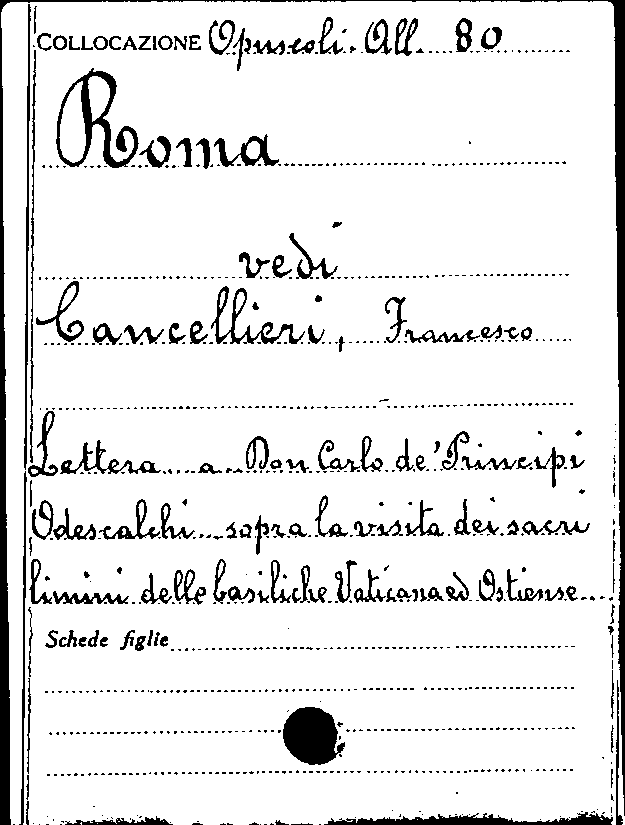 COLLOCAZIONE Opuscoli. All. 80
Roma
vedi
Cancellieri, Francesco
Lettera a Don Carlo de' Principi
Odescalchi sopra la visita dei sacri
limini delle basiliche Vaticana ed Ostiense....
Schede figlie